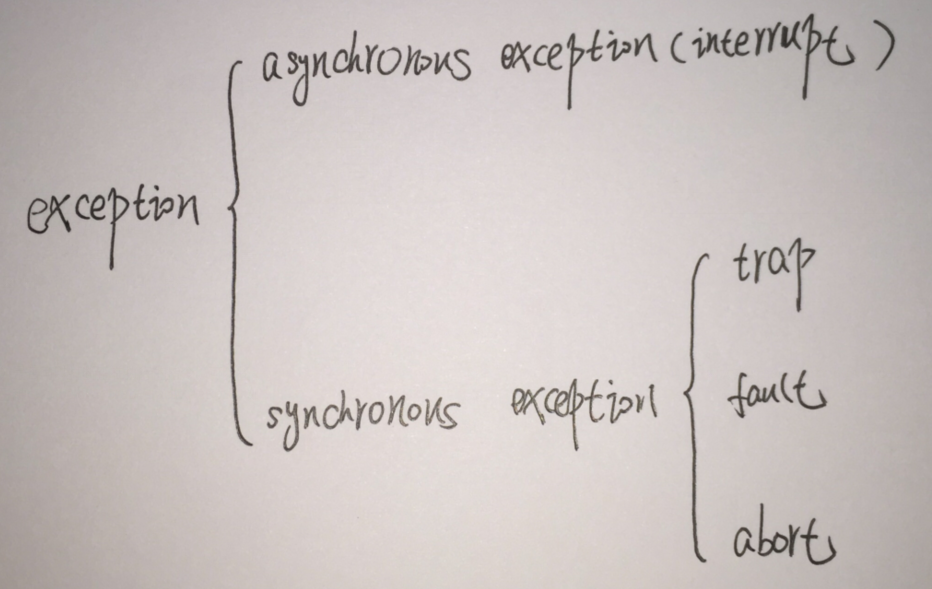 asynchronous exception (interrupt)
exception
trap
fault
synchronous exception
abort